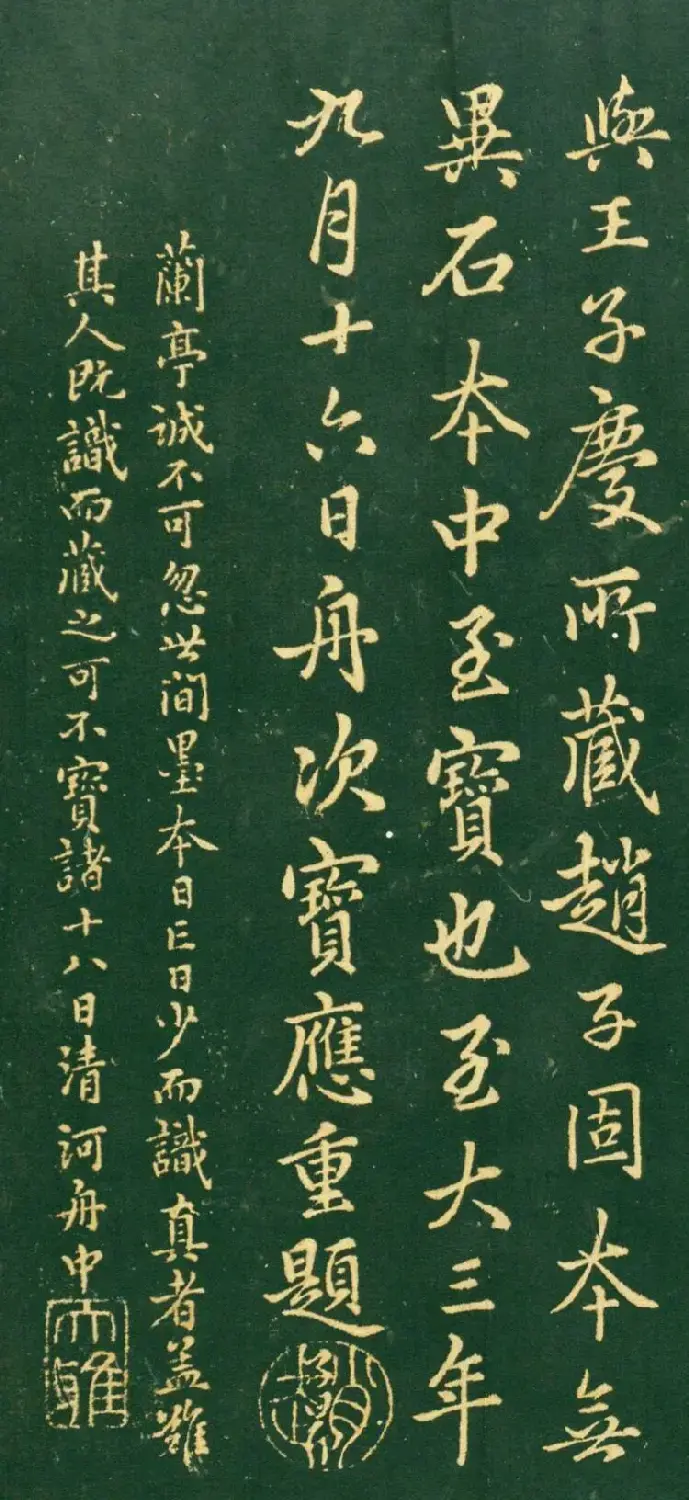 與王子慶所藏趙子固本無
異石本中至寶也至大三年
九月十六日舟次寶應重題
蘭亭誠不可忽世間墨本日亡日少而識真者蓋難
其人既識而藏之可不寶諸十八日清河舟中
大雅